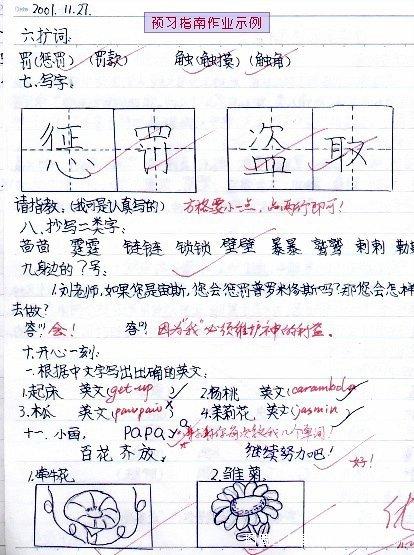 Date 2001.11.27.
预习指南作业示例
六扩词:
罚(惩罚) (罚款) 触(触摸) (触角)
七.写字:
惩 罚 盗 取
请指教:(我可是认真写的) 方格要小一点,占两行即可!
八、抄写二类字:
苗苗 霹霹 链链 锁锁 壁壁 暴暴 鹫鹫 刺刺
九.身边的?号:
1.刘老师,如果您是宙斯,您会惩罚普罗米修斯吗?那您会怎样
去做?
答:"会! 答:"因为"我"必须维护神的利益。
十.开心一刻:
一.根据中文字写出正确的英文:
1.起床 英文(get up) 2.杨桃 英文(carambola)
3.木瓜 英文(pawpaw) 4.茉莉花 英文(jasmin)
十一.小画, papaya
百花齐放, 继续努力吧! 好!
1.牵牛花 2.雏菊
优